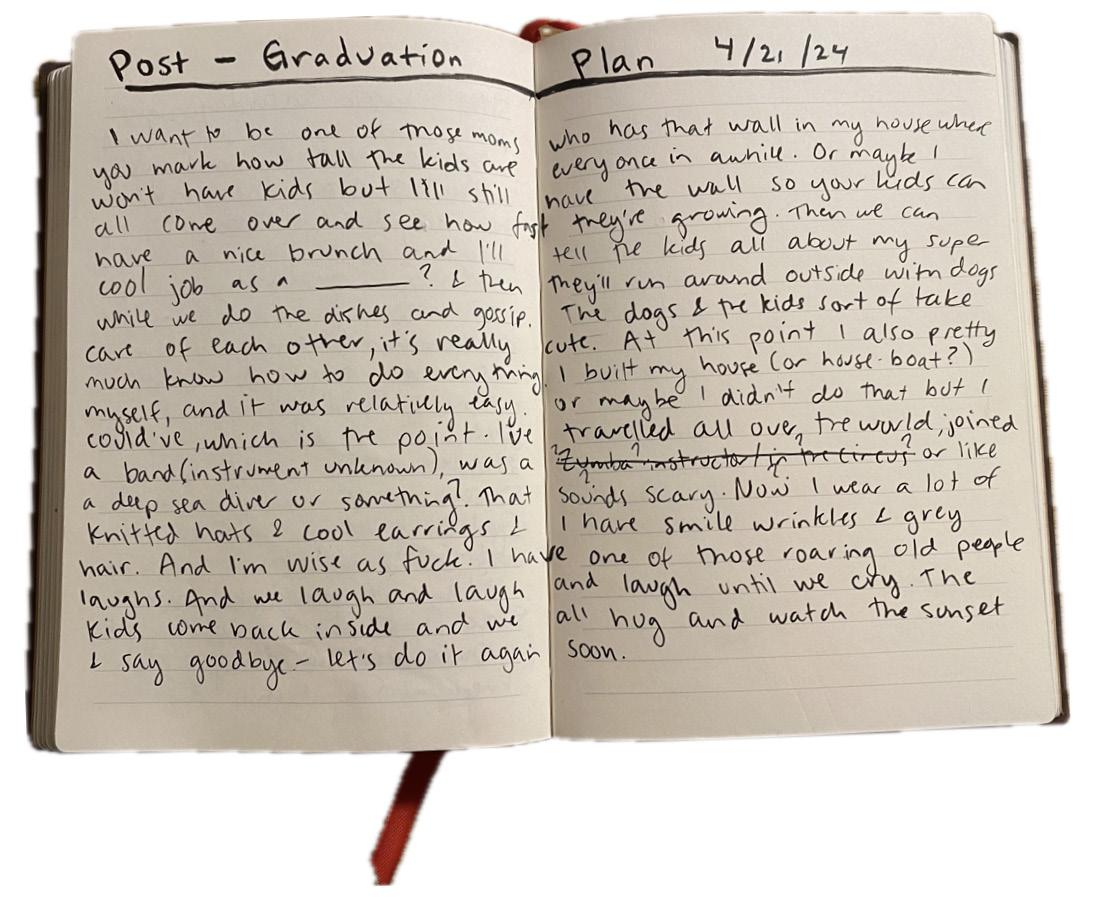 Post - Graduation Plan 4/21/24
I want to be one of those moms who has that wall in my house where
you mark how tall the kids are every once in awhile. Or maybe I
won't have kids but I'll still have the wall so your kids can
all come over and see how fast they're growing. Then we can
have a nice brunch and I'll tell the kids all about my super
cool job as a ______? & then they'll run around outside with dogs
while we do the dishes and gossip. The dogs & the kids sort of take
care of each other, it's really cute. At this point I also pretty
much know how to do everything. I built my house (or house-boat?)
myself, and it was relatively easy. or maybe I didn't do that but I
could've, which is the point. I've travelled all over the world, joined
a band (instrument unknown), was a ?Zumba? instructor/in the circus? or like
a deep sea diver or something? That sounds scary. Now I wear a lot of
knitted hats & cool earrings & I have smile wrinkles & grey
hair. And I'm wise as fuck. I have one of those roaring old people
laughs. And we laugh and laugh and laugh until we cry. The
kids come back inside and we all hug and watch the sunset
& say goodbye - let's do it again soon.